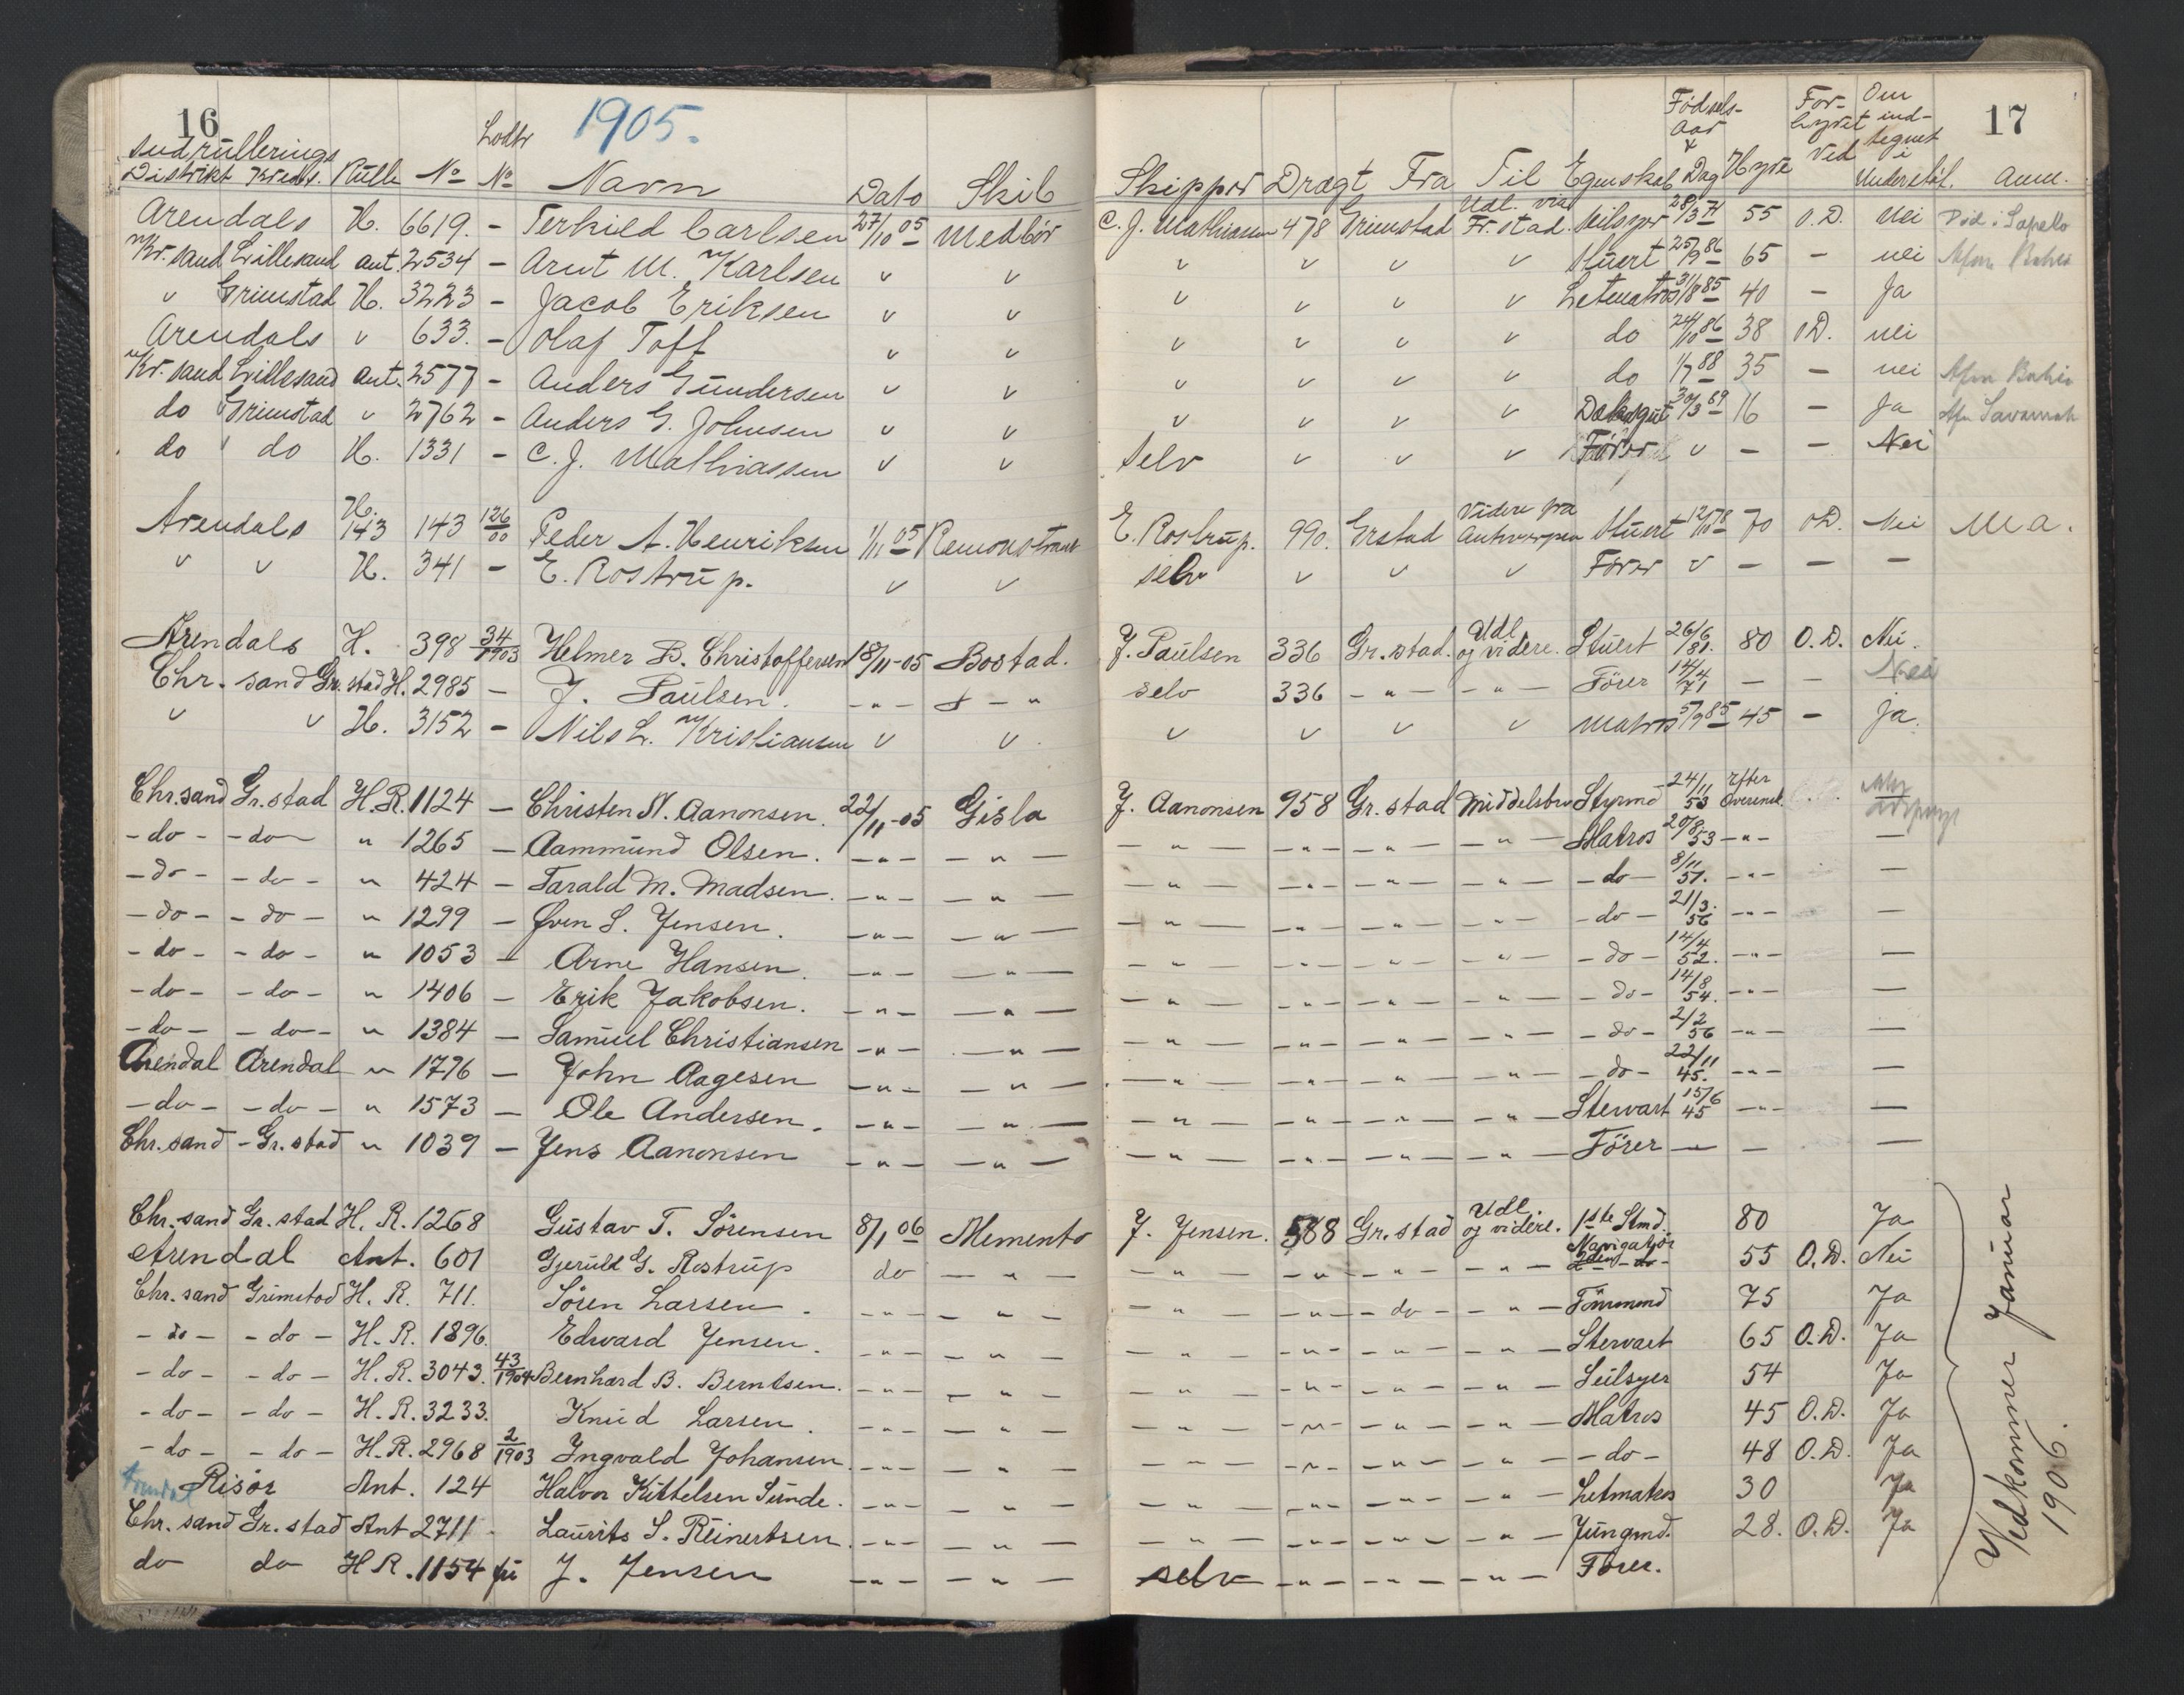 16 1905. 17
Indrullerings Distrikt Kreds. Rulle No Lodtr No Navn Dato Skib Skipper Drægt Fra Til Egenskab Fødsels-Aar & Dag Hyre For-hyret Ved Om ind-tegnet i Understøt. Anm.
Arendals H. 6619. - Terkild Carlsen 27/10 05 Medbör C. J. Mathiassen 478 Grimstad Udl. via Fr.stad. Seilsyer 28/3 71 55 O.D. Nei Död i Sapello
Kr.sand Lillesand ant. 2534 - Arnt M. Karlsen v v v v v v Stuert 25/9 86 65 - nei Afm Bahia
v Grimstad H. 3223 - Jacob Eriksen v v v v v v Letmatros 31/8 85 40 - Ja
Arendals v 633. - Olaf Toft v v v v v v do 24/10 86 38 O.D. nei
Kr.sand Lillesand ant. 2577 - Anders Gundersen v v v v v v do 1/7 88 35 - nei Afm Bahia
do Grimstad v 2762 - Anders G. Johnsen v v v v v v Dæksgut 30/3 89 16 - Ja Afm Savannah
do v do H. 1331 - C. J. Mathiassen v v selv v v v Förer v - - Nei
Arendals H. 143 143 126/00 Peder A. Henriksen 1/11 05 Remonstrant E. Rostrup. 990. Grstad Videre fra Antwerpen Stuert 12/10 78 70 O.D. Nei M a.
v v H. 341 - E. Rostrup. v v selv v v v Förer v - - -
Arendals H. 398 34/1903 Helmer B. Christoffersen 18/11-05 Bostad. J. Paulsen 336 Gr.stad. Udl og videre. Stuert 26/6 81. 80 O.D. Nei.
Chr.sand Gr.stad H. 2985 - J. Paulsen. -"- -"- selv 336 -"- -"- Förer 14/4 71 - - Nei
v v H. 3152 - Nils L. Kristiansen v v v v v v Matros 5/9 85 45 - ja.
Chr.sand Gr.stad H.R. 1124 - Christen N. Aanonsen. 22/11-05 Gisla J. Aanonsen 958 Gr.stad Middelsbro Styrmd 24/11 53 Efter Overensk.
-do- -do- " 1265 - Aammund Olsen. -"- -"- -"- -"- -"- -"- Matros 20/8 53 -"- -
-do- -do- " 424 - Tarald M. Madsen. -"- -"- -"- -"- -"- -"- -do- 8/11 51. -"- -
-do- -do- " 1299 - Even S. Jensen. -"- -"- -"- -"- -"- -"- -do- 21/3. 56 -"- -
-do- -do- " 1053 - Arne Hansen. -"- -"- -"- -"- -"- -"- -do- 14/4 52. -"- -
-do- -do- " 1406 - Erik Jakobsen. -"- -"- -"- -"- -"- -"- -do- 14/8 54. -"- -
-do- -do- " 1384 - Samuel Christiansen -"- -"- -"- -"- -"- -"- -do- 2/2 56 -"- -
Arendal Arendal " 1776 - John Aagesen -"- -"- -"- -"- -"- -"- -do- 22/11 45. -"- -
-do- -do- " 1573 - Ole Andersen. -"- -"- -"- -"- -"- -"- Stewart 15/6 45 -"- -
Chr.sand - Gr.stad " 1039 - Jens Aanonsen -"- -"- -"- -"- -"- -"- Förer - - -
Chr.sand Gr.stad H. R. 1268 Gustav T. Sörensen 8/1 06 Memento J. Jensen. 588 Gr.stad Udl. og videre. 1ste Stmd. 80 Ja
Arendal Ant. 601 Gjeruld G. Rostrup do -"- -"- -"- -"- -"- Navigatör 2den -do- 55 O.D. Nei
Chr.sand Grimstad H. R. 711. Sören Larsen. -"- -"- -"- -"- -do- -"- Tömmmd 75 Ja
-do- -do- H.R. 1896. Edward Jensen. -"- -"- -"- -"- -"- -"- Stewart 65 O.D. Ja
-do- -do- H.R. 3043. 43/1904 Bernhard B. Berntsen. -"- -"- -"- -"- -"- -"- Seilsyer 54 Ja
-do- -do- H.R. 3233. Knud Larsen. -"- -"- -"- -"- -"- -"- Matros 45 O.D. Ja
-do- -do- H.R. 2968 2/1903 Ingvald Johansen. -"- -"- -"- -"- -"- -"- -do- 48 O.D. Ja
Arendal Risör Ant. 124 Halvor Kittelsen Sunde. -"- -"- -"- -"- -"- -"- Letmatros 30 Ja
Chr.sand Gr.stad Ant 2711 Laurits S. Reinertsen. -"- -"- -"- -"- -"- -"- Jungmd. 28. O.D. Ja
do do H R. 1154 J. Jensen -"- -"- selv -"- -"- -"- Förer.
Vedkommer Januar 1906.